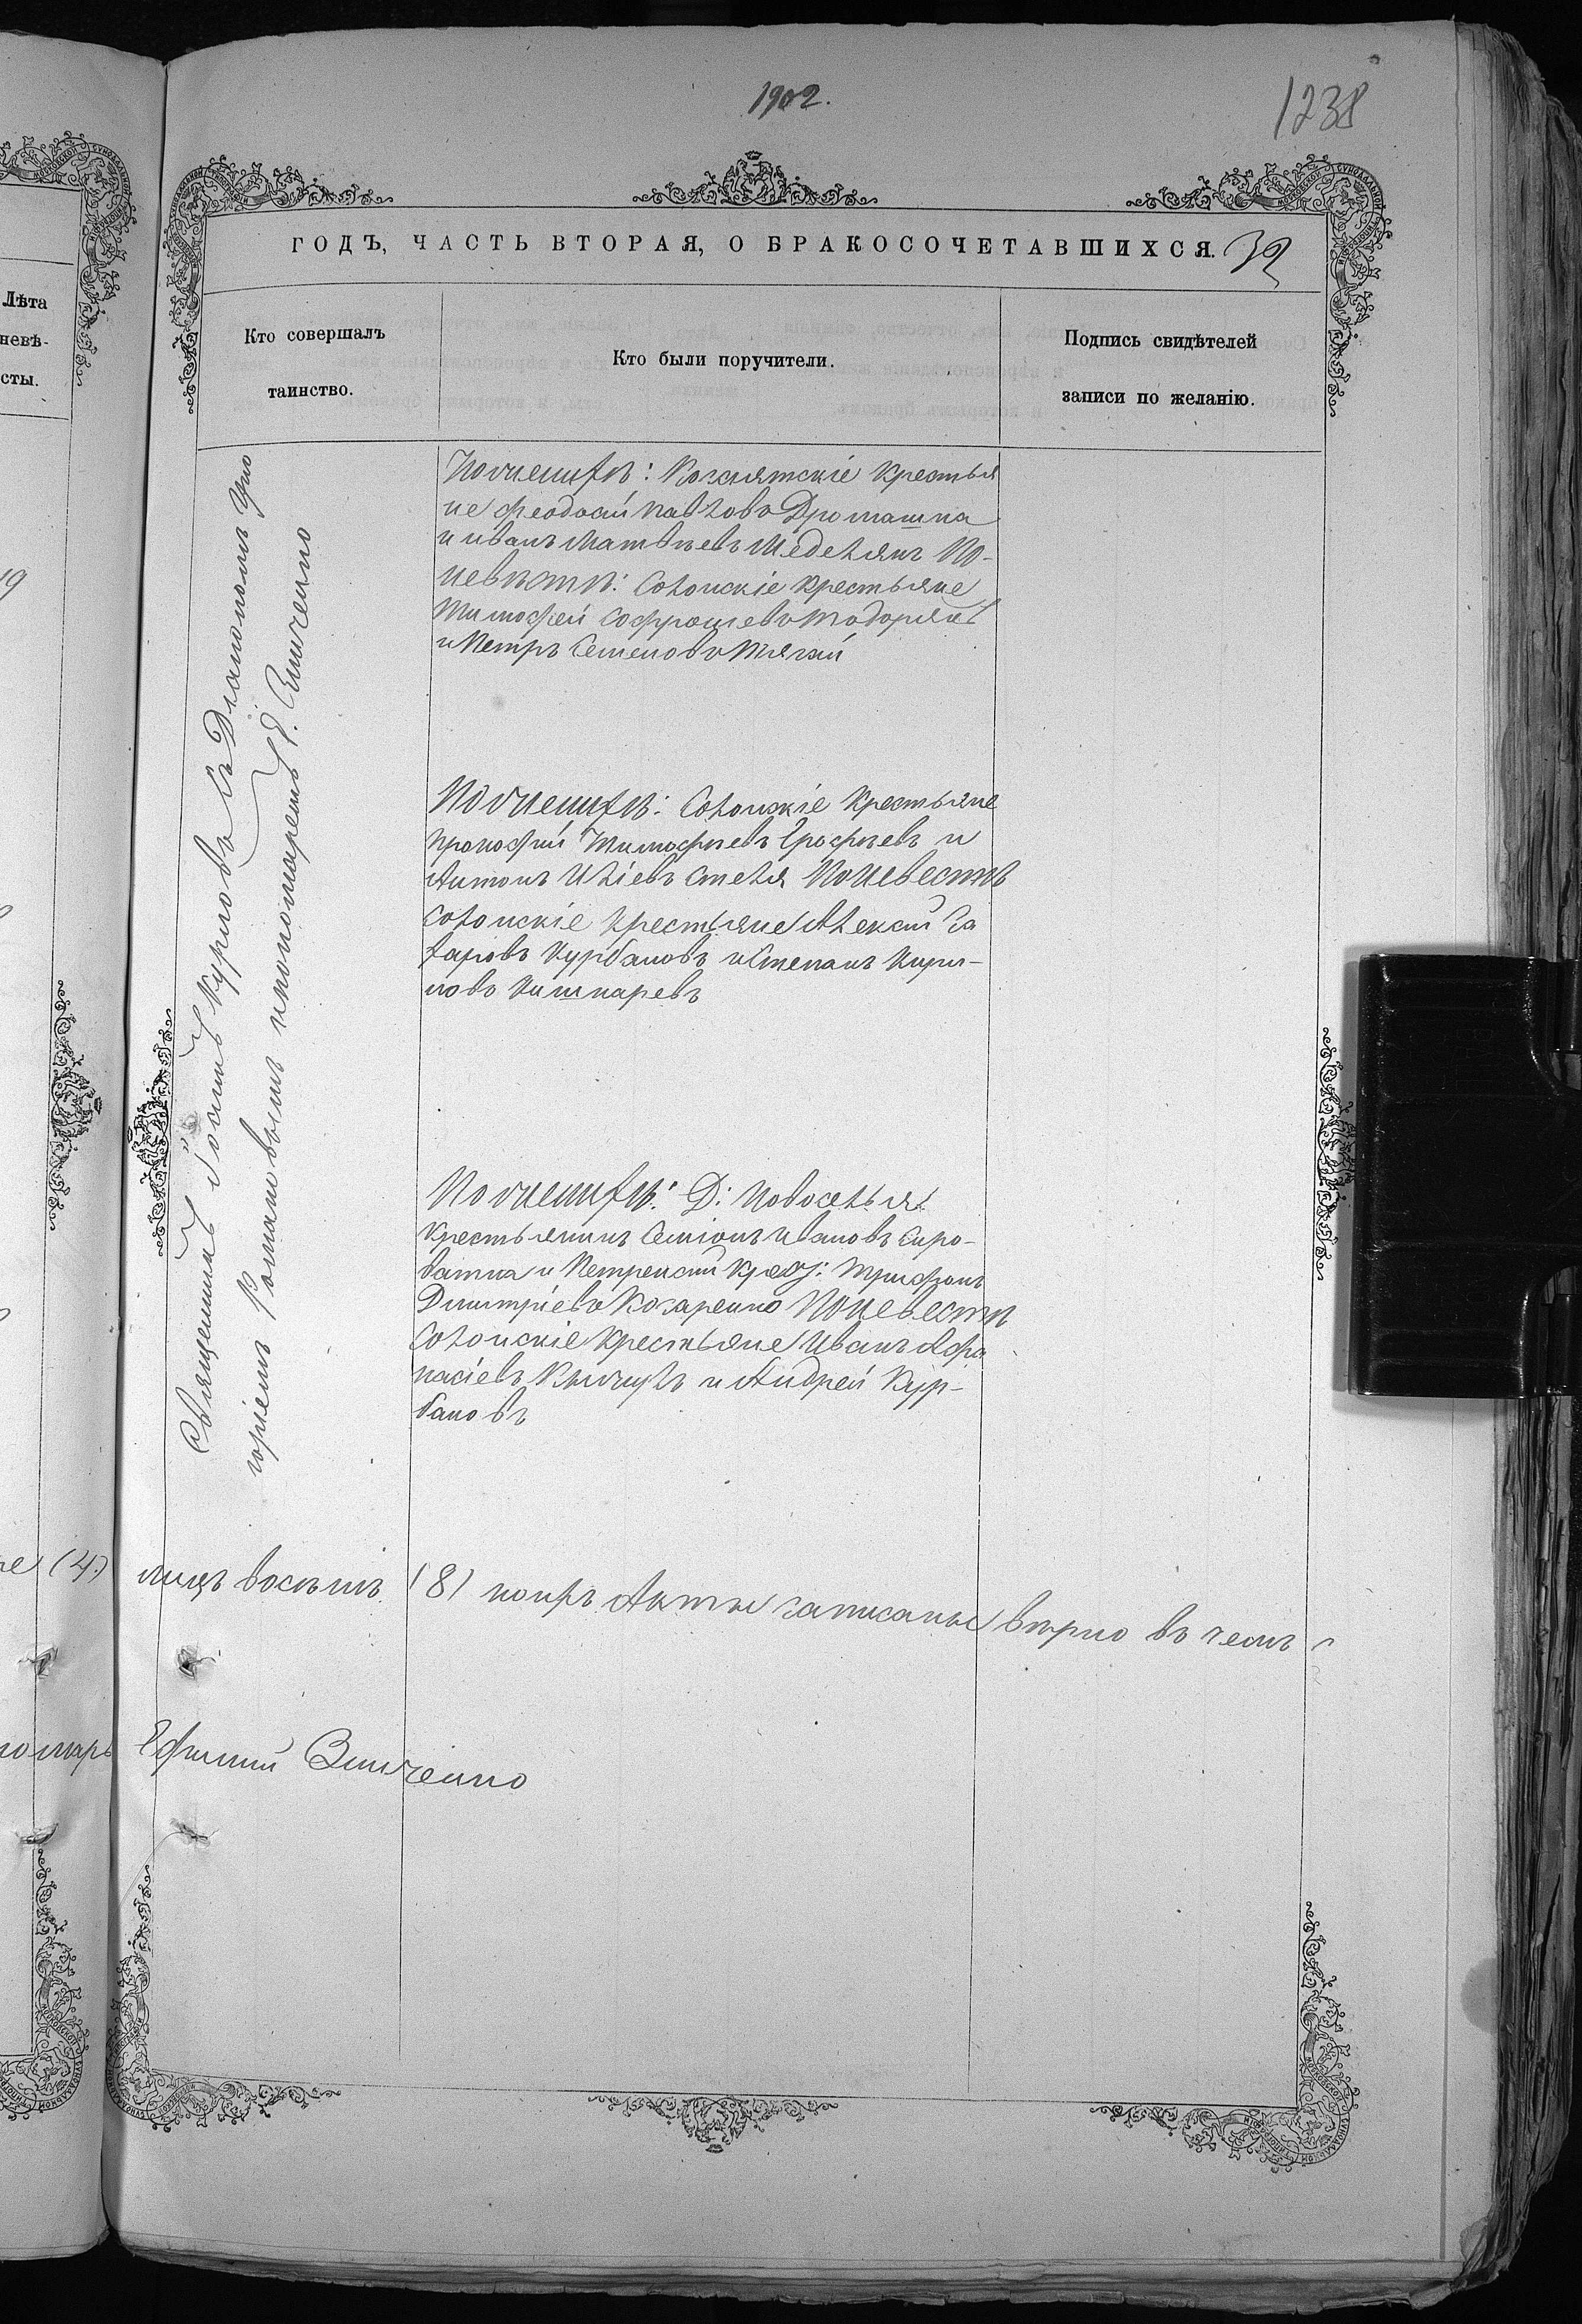 1902.
1238
ГОДЪ, ЧАСТЬ ВТОРАЯ, О БРАКОСОЧЕТАВШИХСЯ. 32
Лѣта
невѣ-
сты.
Кто совершалъ
таинство.
Кто были поручители.
Подпись свидѣтелей
записи по желанію.
Священникъ Іоаннъ Куриловъ съ Діакономъ Гри
горіемъ Романовымъ и пономаремъ Е. Зинченко
По женихѣ: Крестья
не Феодосій Павловъ Дромашка
и Иванъ Матвѣевъ Меделянъ По
невѣстѣ: Солонскіе крестьяне
Тимофей Софроніевъ Тодоряка
и Петръ Семеновъ Тягай
По женихѣ: Солонскіе крестьяне
Прокофій Тимофѣевъ Ерофѣевъ и
Антонъ Иліевъ Стеля По невестѣ
Солонскіе крестьяне Алексій За
харовъ Курбановъ и Степанъ Кири-
ловъ Кишкаревъ
По женихѣ: Д: Новоселья
крестьянинъ Семіонъ Ивановъ Сиро-
ватка и Петренскій крест: Трифонъ
Дмитріевъ Козаренко По невестѣ
Солонскіе крестьяне Иванъ Афа
насіевъ и Андрей Кур-
бановъ
ре (4)
лицъ восѣмъ (8) коихъ Акты записаны вѣрно въ чемъ с
номарь Ефимій Зинченко